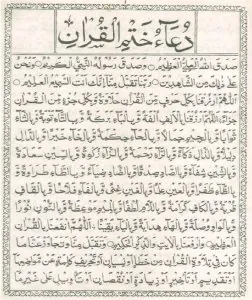 دُعَاءُ خَتْمِ الْقُرْآنِ
صَدَقَ اللهُ الْعَلِيُّ الْعَظِيْمُ وَصَدَقَ رَسُوْلُهُ النَّبِيُّ الْكَرِيْمُ وَنَحْنُ
عَلٰى ذٰلِكَ مِنَ الشَّاهِدِيْنَ رَبَّنَا تَقَبَّلْ مِنَّا اِنَّكَ اَنْتَ السَّمِيْعُ الْعَلِيْمُ
اَللّٰهُمَّ ارْزُقْنَا بِكُلِّ حَرْفٍ مِّنَ الْقُرْاٰنِ حَلَاوَةً وَّبِكُلِّ جُزْءٍ مِّنَ الْقُرْاٰنِ
جَزَاءً اَللّٰهُمَّ ارْزُقْنَا بِالْاَلِفِ اُلْفَةً وَّبِالْبَاءِ بَرَكَةً وَّبِالتَّاءِ تَوْبَةً وَّبِالثَّاءِ
ثَوَابًا وَّبِالْجِيْمِ جَمَالًا وَّبِالْحَاءِ حِكْمَةً وَّبِالْخَاءِ خَيْرًا وَّبِالدَّالِ
دَلِيْلًا وَّبِالذَّالِ ذَكَاءً وَّبِالرَّاءِ رَحْمَةً وَّبِالزَّاءِ زَكٰوةً وَّبِالسِّيْنِ سَعَادَةً
وَّبِالشِّيْنِ شِفَاءً وَّبِالصَّادِ صِدْقًا وَّبِالضَّادِ ضِيَاءً وَّبِالطَّاءِ
وَّبِالظَّاءِ ظَفَرًا وَّبِالْعَيْنِ عِلْمًا وَّبِالْغَيْنِ غِنًى وَّبِالْفَاءِ فَلَاحًا وَّبِالْقَافِ
قُرْبَةً وَّبِالْكَافِ كَرَامَةً وَّبِاللَّامِ لُطْفًا وَّبِالْمِيْمِ مَوْعِظَةً وَّبِالنُّوْنِ نُوْرًا
وَّبِالْوَاوِ وُصْلَةً وَّبِالْهَاءِ هِدَايَةً وَّبِالْيَاءِ يَقِيْنًا اَللّٰهُمَّ انْفَعْنَا بِالْقُرْاٰنِ
الْعَظِيْمِ وَارْفَعْنَا بِالْاٰيٰتِ وَالذِّكْرِ الْحَكِيْمِ وَتَقَبَّلْ مِنَّا وَتَجَاوَزْ عَنَّا مَا
كَانَ فِيْ تِلَاوَةِ الْقُرْاٰنِ مِنْ خَطَإٍ اَوْ نِسْيَانٍ اَوْ تَحْرِيْفِ كَلِمَةٍ عَنْ مَّوَاضِعِهَا
اَوْ تَقْدِيْمٍ اَوْ تَاْخِيْرٍ اَوْ زِيَادَةٍ اَوْ نُقْصَانٍ اَوْ تَاْوِيْلٍ عَلٰى غَيْرِ مَا